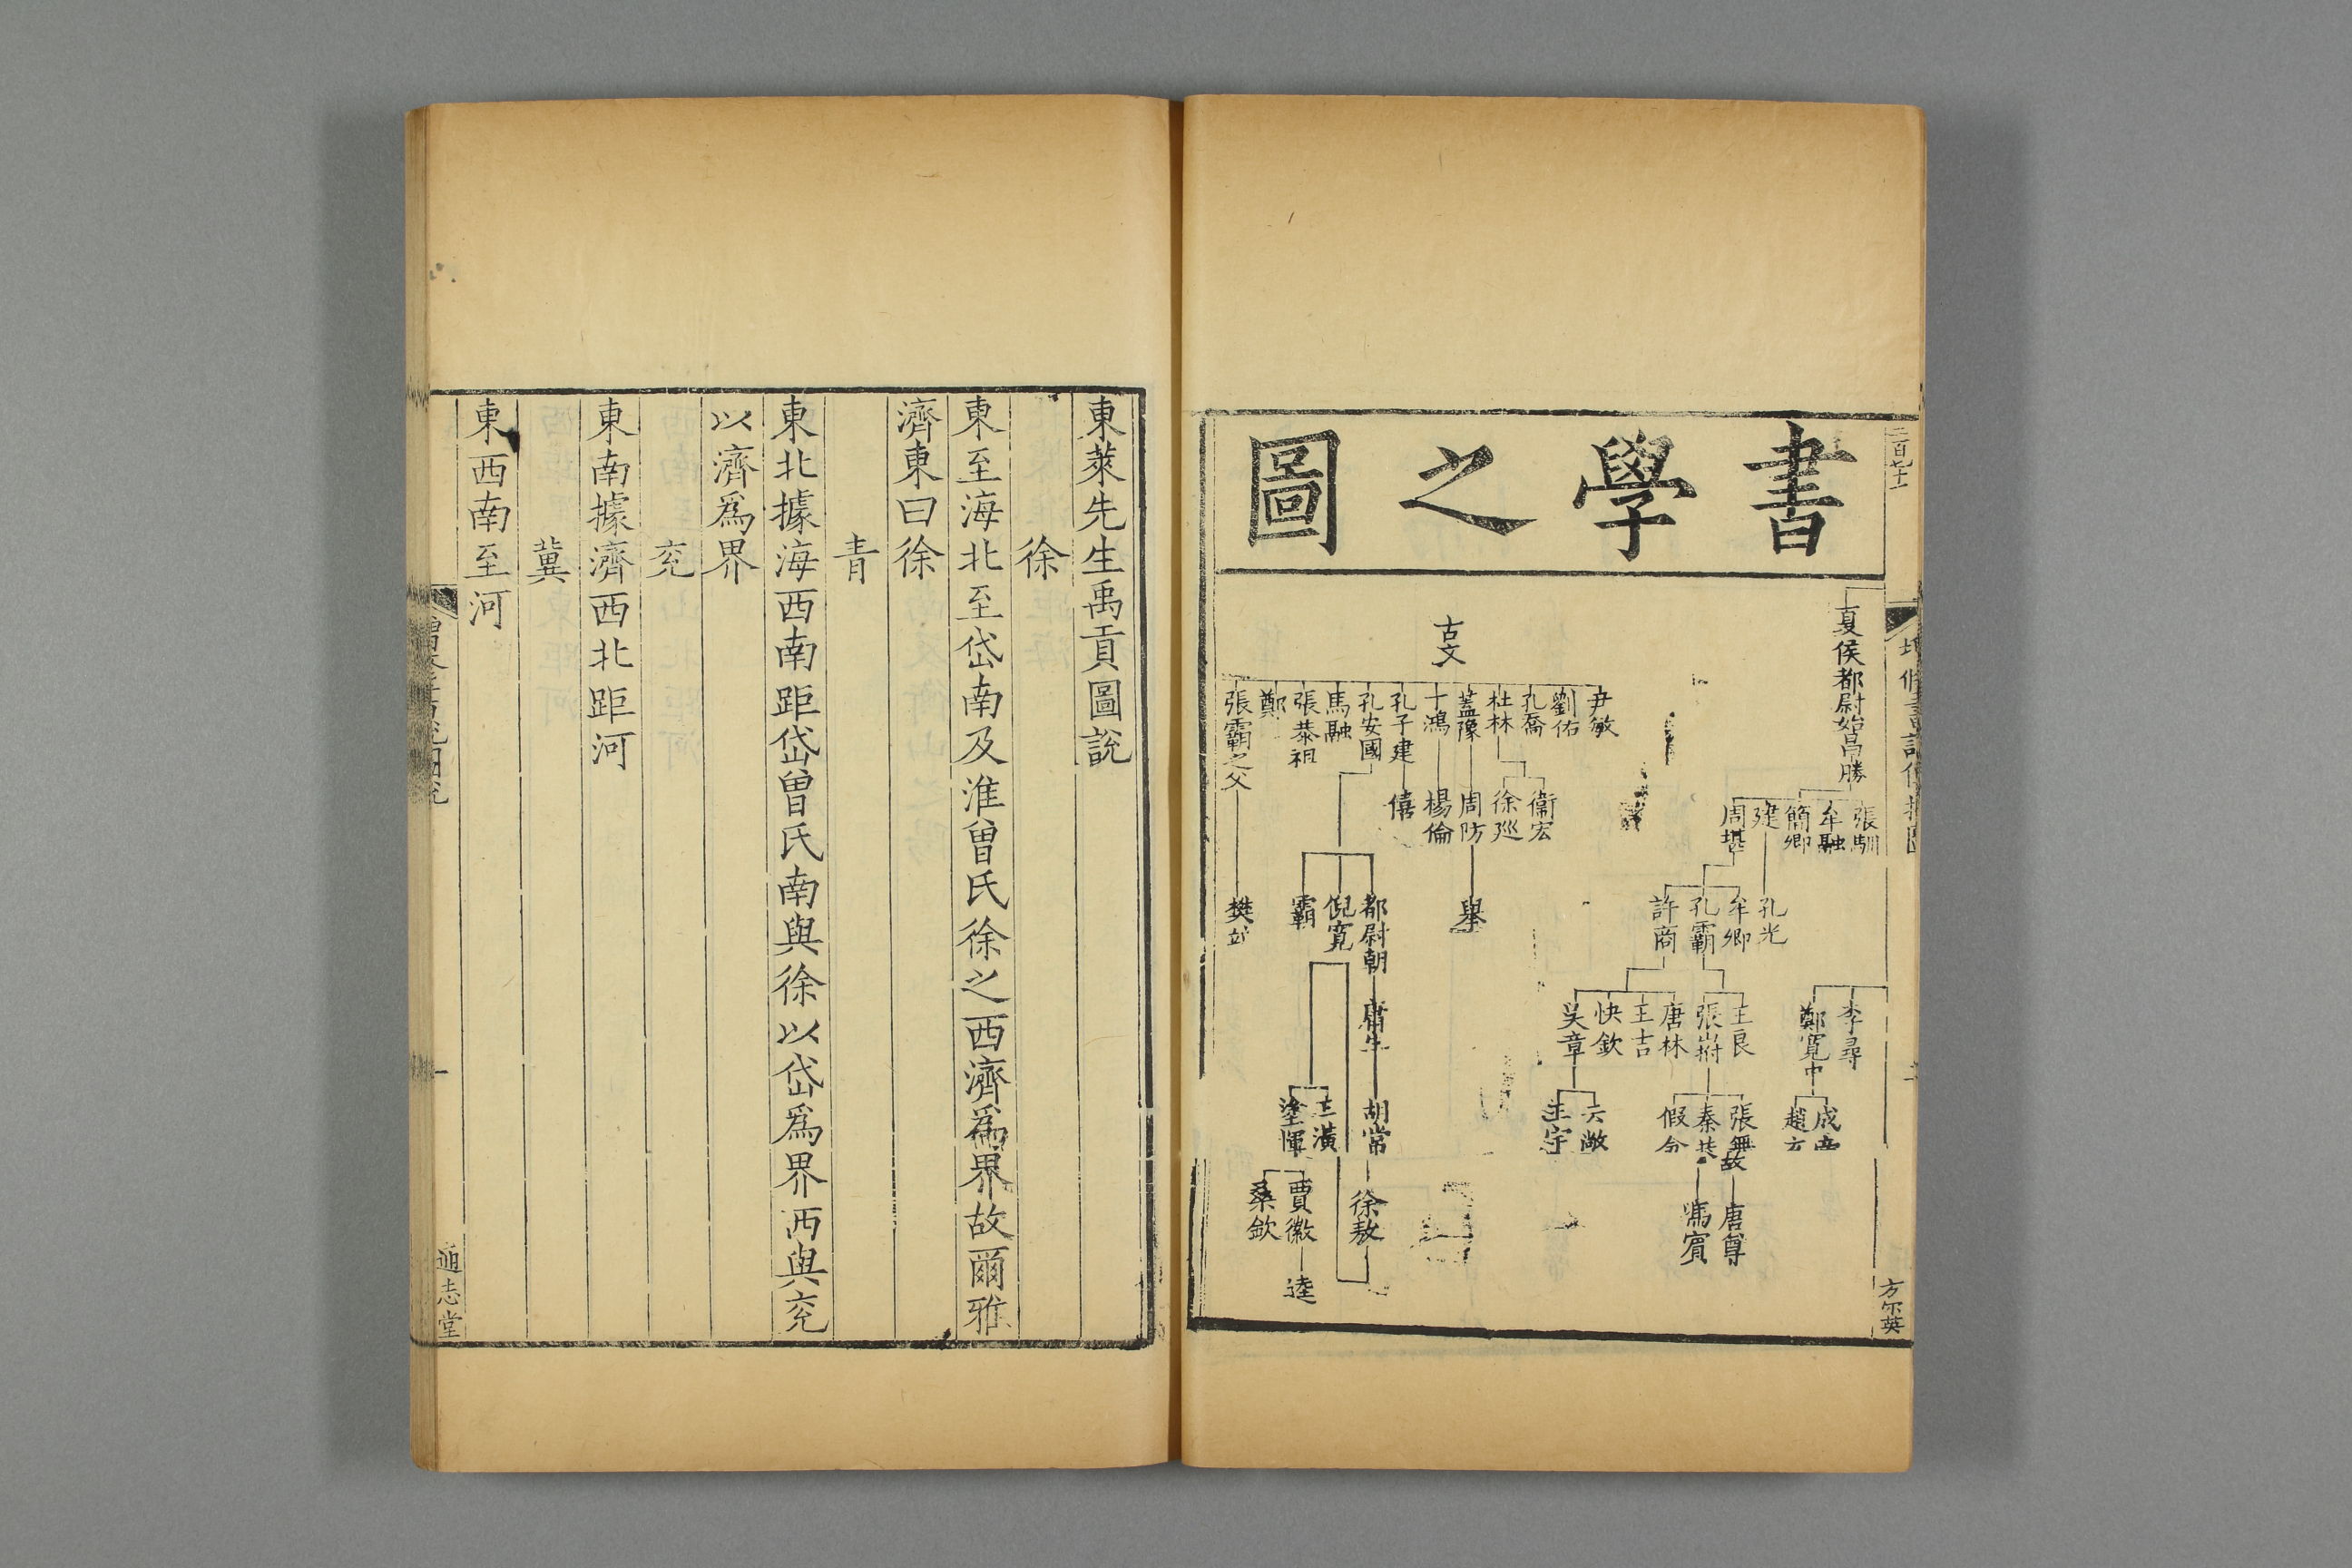 書學之圖
夏侯都尉始昌勝
張馴
牟融
簡卿
建
周堪
孔光
牟卿
孔霸
許商
李尋
鄭寬中
王良
張山拊
唐林
王吉
快欽
吳章
成
趙
張無故
秦恭
假倉
云敞
王宇
唐尊
馮賓
古文
尹敏
劉佑
孔喬
杜林
蓋豫
丁鴻
孔子建
孔安國
馬融
張恭祖
鄭
張霸之父
衞宏
徐巡
周防
楊倫
僖
舉
都尉朝
倪寬
霸
樊並
庸生
胡常
王璜
塗惲
徐敖
賈徽
桑欽
逵
方尓英
東萊先生禹貢圖說
徐
東至海北至岱南及淮曾氏徐之西濟爲界故爾雅
濟東曰徐
青
東北據海西南距岱曾氏南與徐以岱爲界西與兖
以濟爲界
兖
東南據濟西北距河
冀
東西南至河
一
通志堂